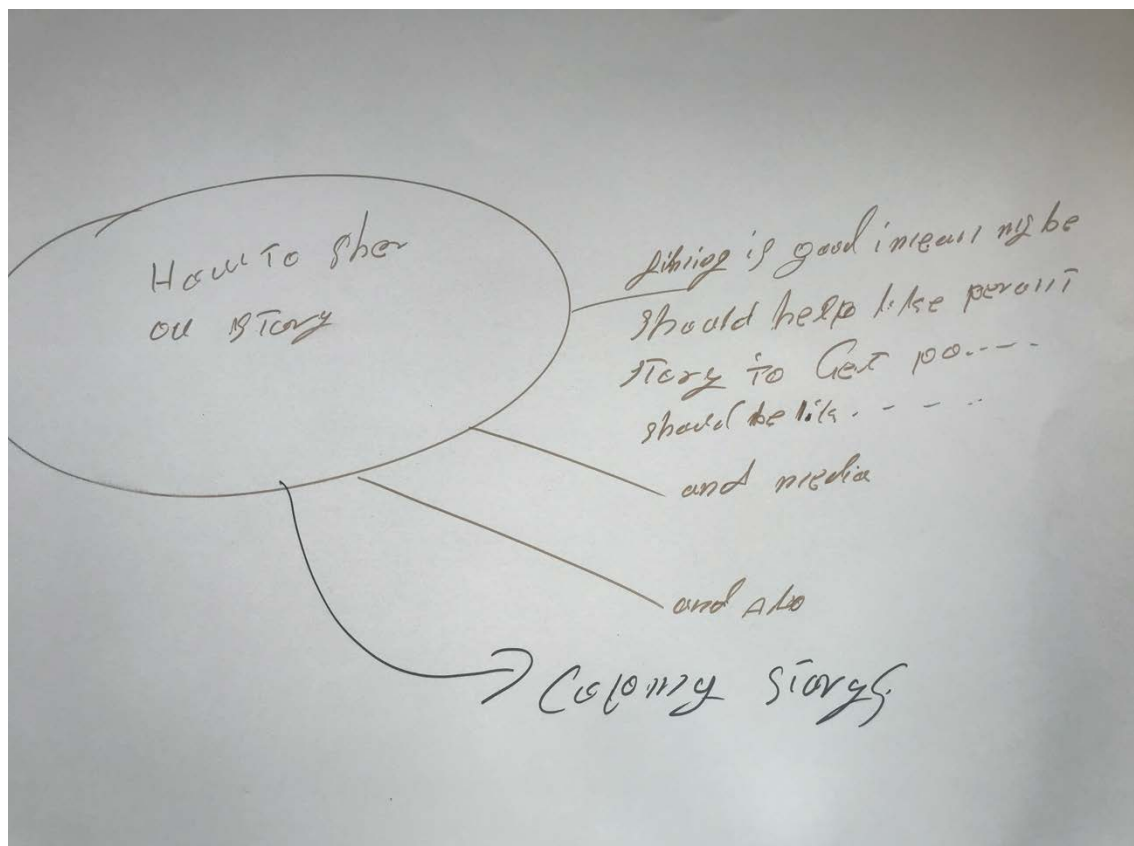 How To Sher
our story
is good i mean my be
should help like
story to Get po.----
should be lik. - - - -
and media
and also
Colony storys